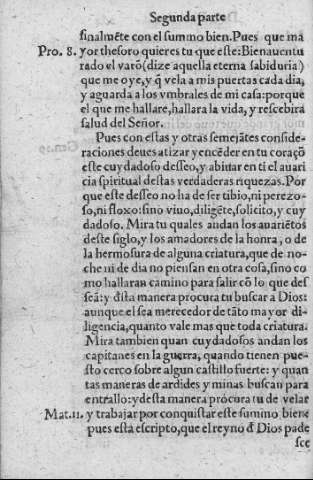 Segunda parte
finalmẽte con el summo bien. Pues que ma
Pro. 8. yor thesoro quieres tu que este: Bienauentu
rado el varõ (dize aquella eterna sabiduria)
que me oye, y q̃ vela a mis puertas cada dia,
y aguarda a los vmbrales de mi casa: porque
el que me hallare, hallara la vida, y rescebira
salud del Señor.
Pues con estas y otras semejãtes conside-
raciones deues atizar y encẽder en tu coraçõ
este cuydadoso desseo, y abiuar en ti el auari
cia spiritual destas verdaderas riquezas. Por
que este desseo no ha de ser tibio, ni perezo-
so, ni floxo: sino viuo, diligẽte, solicito, y cuy
dadoso. Mira tu quales andan los auariẽtos
deste siglo, y los amadores de la honra, o de
la hermosura de alguna criatura, que de no-
che ni de dia no piensan en otra cosa, sino co
mo hallaran camino para salir cõ lo que des
seã: y d̃sta manera procura tu buscar a Dios:
aunque el sea merecedor de tãto mayor di-
ligencia, quanto vale mas que toda criatura.
Mira tambien quan cuydadosos andan los
capitanes en la guerra, quando tienen pue-
sto cerco sobre algun castillo fuerte: y quan
tas maneras de ardides y minas buscan para
entrallo: y desta manera procura tu de velar
Mat. 11. y trabajar por conquistar este summo bien:
pues esta escripto, que el reyno d̃ Dios pade
sce